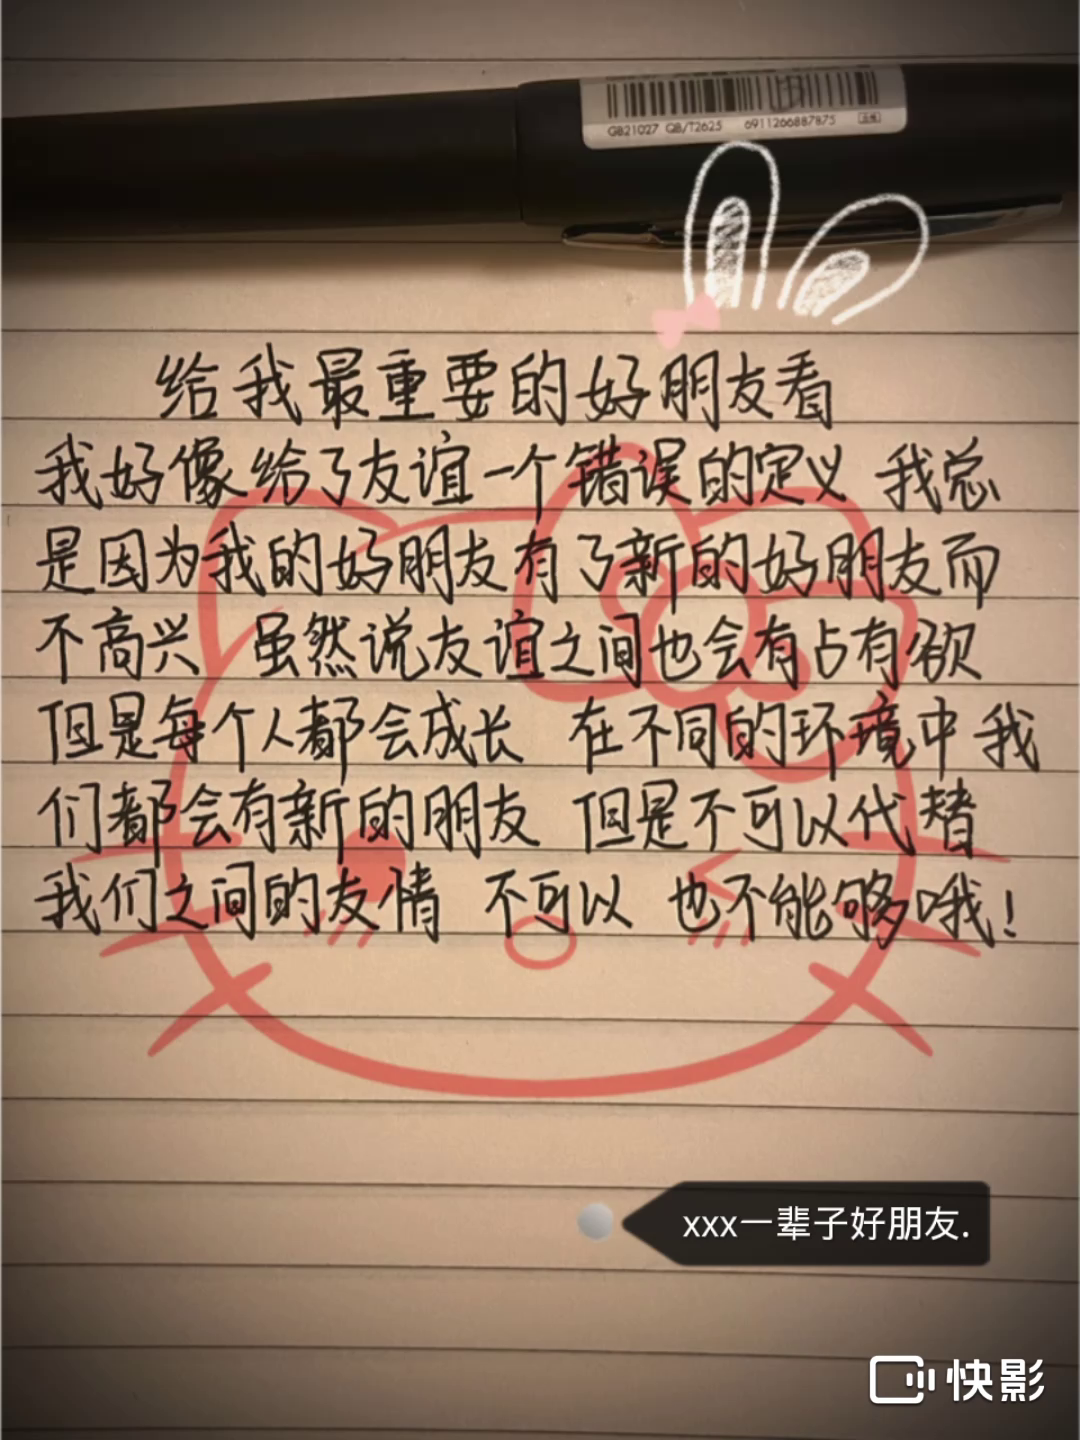 GB21027 QB/T2625 6911266887875
给我最重要的好朋友看
我好像给了友谊一个错误的定义 我总
是因为我的好朋友有了新的好朋友而
不高兴 虽然说友谊之间也会有占有欲
但是每个人都会成长 在不同的环境中 我
们都会有新的朋友 但是不可以代替
我们之间的友情 不可以 也不能够哦!
xxx一辈子好朋友.
快影